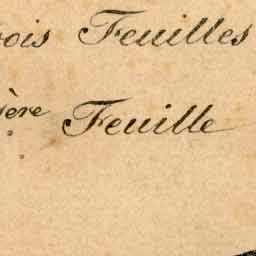 ois Feuilles
ère Feuille